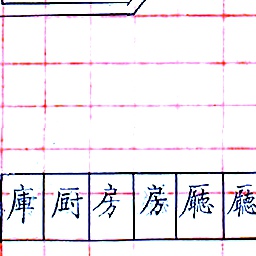 庫厨房房廳廳